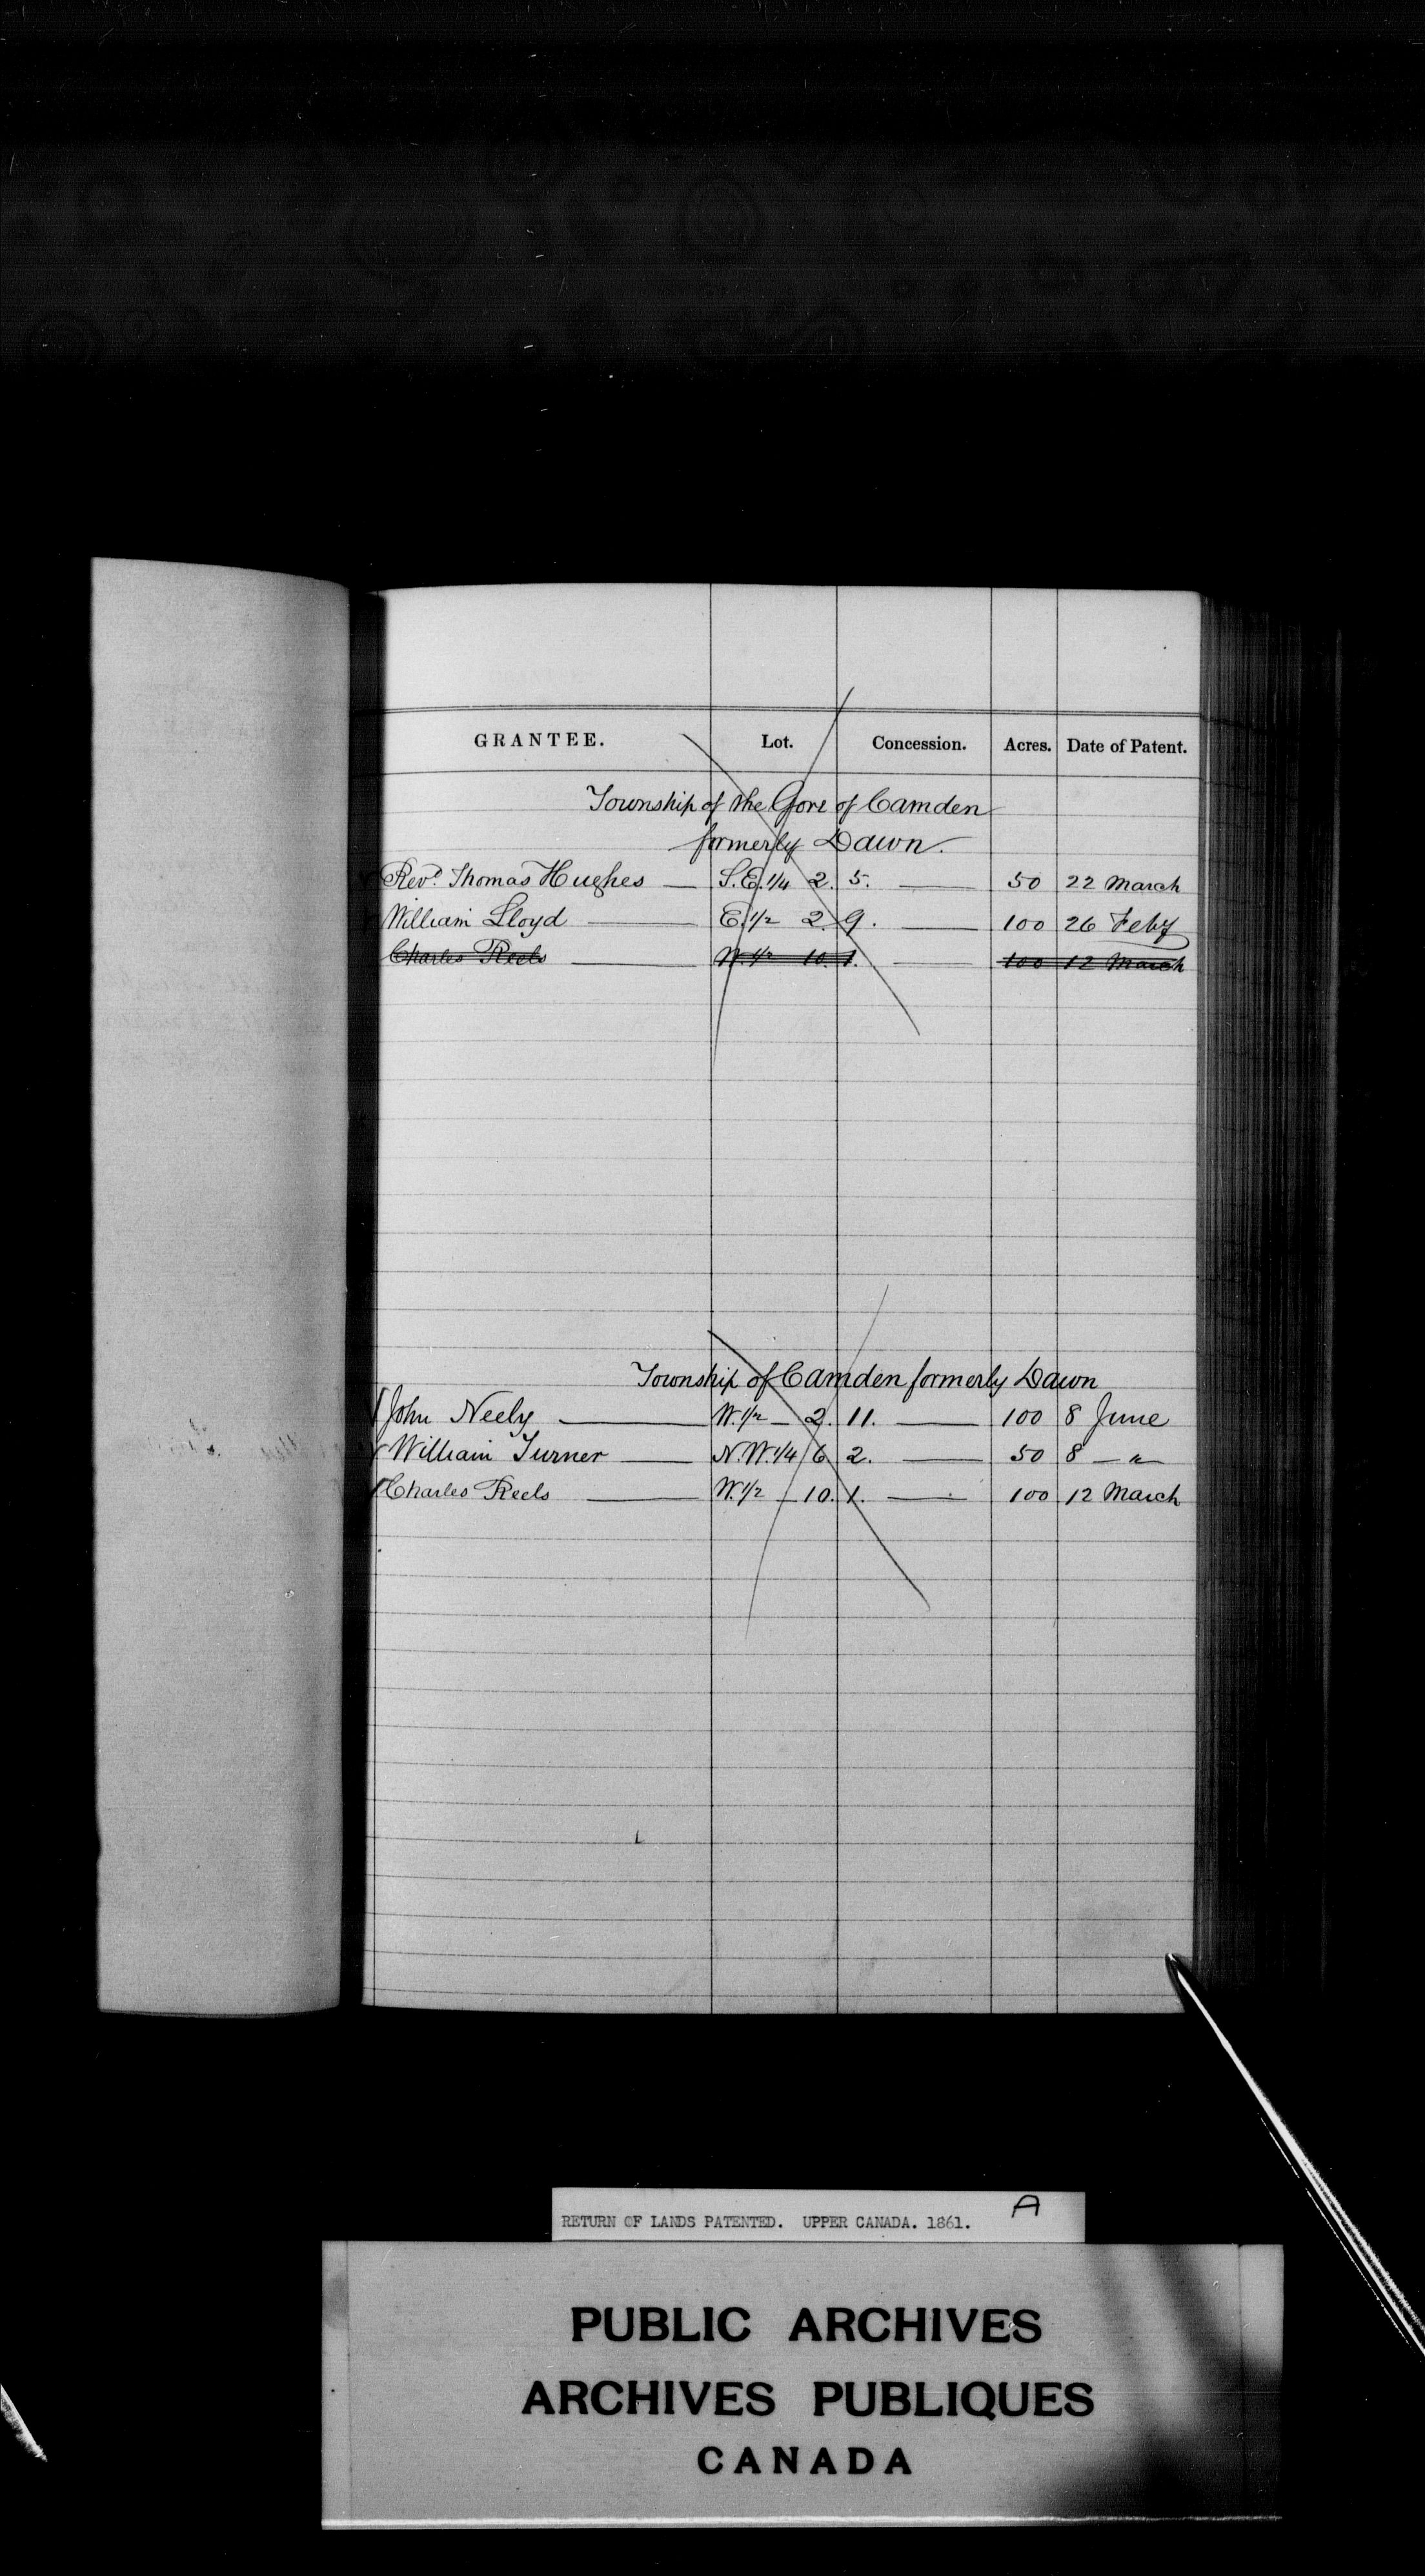 GRANTEE. Lot. Concession. Acres. Date of Patent.
Township of the Gore of Camden
formerly Dawn.
Revd. Thomas Hughes — S.E. 1/4 2. 5. — 50 22 March
William Lloyd — E. 1/2 2. 9. — 100 26 Feby
Charles Reels — W. 1/2 10. 1. — 100 12 March
Township of Camden formerly Dawn
John Neely — W. 1/2 — 2. 11. — 100 8 June
William Turner — N.W. 1/4 6 2. — 50 8 — "
Charles Reels — W. 1/2 — 10. 1. — 100 12 March
A
RETURN OF LANDS PATENTED. UPPER CANADA. 1861.
PUBLIC ARCHIVES
ARCHIVES PUBLIQUES
CANADA